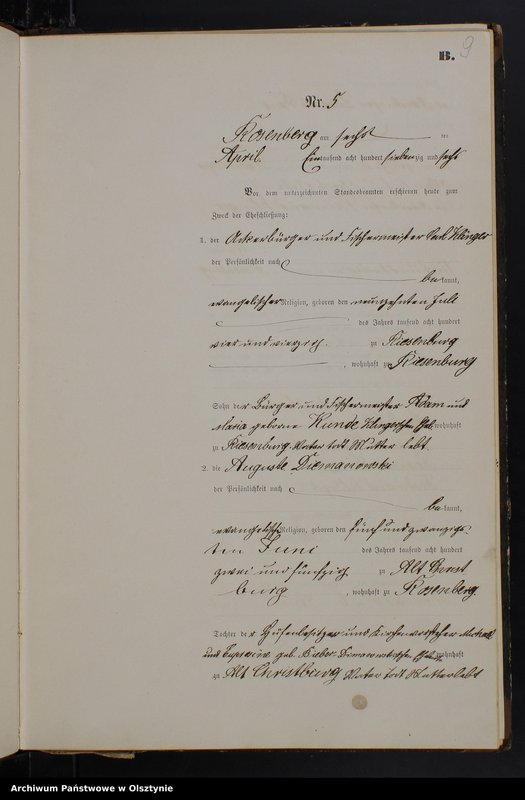 B. 9
Nr. 5
Rosenberg am sechs ten
April. Eintausend acht hundert siebenzig und sechs
Vor dem unterzeichneten Standesbeamten erschienen heute zum
Zweck der Eheschließung:
1. der Ackerbürger und Fischermeister Carl Klinger
der Persönlichkeit nach
be kannt,
evangelischer Religion, geboren den neunzehnten Juli
des Jahres tausend acht hundert
vier und vierzig. zu Riesenburg
, wohnhaft zu Riesenburg
Sohn der Bürger und Fischermeister Adam und
Maria geborne Kunde Klingerschen Ehel. wohnhaft
zu Riesenburg. Vater todt Mutter lebt.
2. die Auguste Diemanowski
der Persönlichkeit nach
be kannt,
evangelisch Religion, geboren den fünfundzwanzigs
ten Juni des Jahres tausend acht hundert
zwei und fünfzig zu Alt Christ
burg , wohnhaft zu Rosenberg
Tochter der Hufenbesitzer und Kirchenvorsteher Michael
und geb. Bieber wohnhaft
zu Alt Christburg Vater todt Mutter lebt
Archiwum Państwowe w Olsztynie